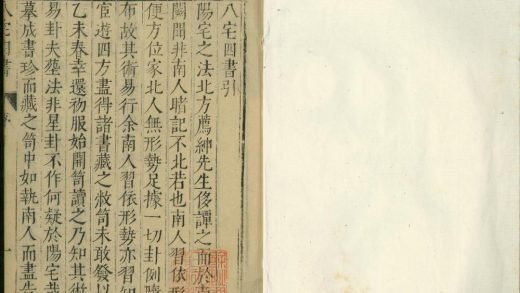 八宅四書引
陽宅之法北方薦紳先生侈譚之而於
闢闔非南人暗記不北若也南人習依形
便方位家北人無形勢足據一切卦例
布故其術易行余南人習依形勢亦習
宦遊四方盡得諸書藏之敝笥未敢發以
乙未春幸還初服始開笥讀之乃知其術
易卦夫塟法非星卦不作何疑於陽宅哉
墓成書珍而藏之笥中如執南人而盡告
八宅四書
一